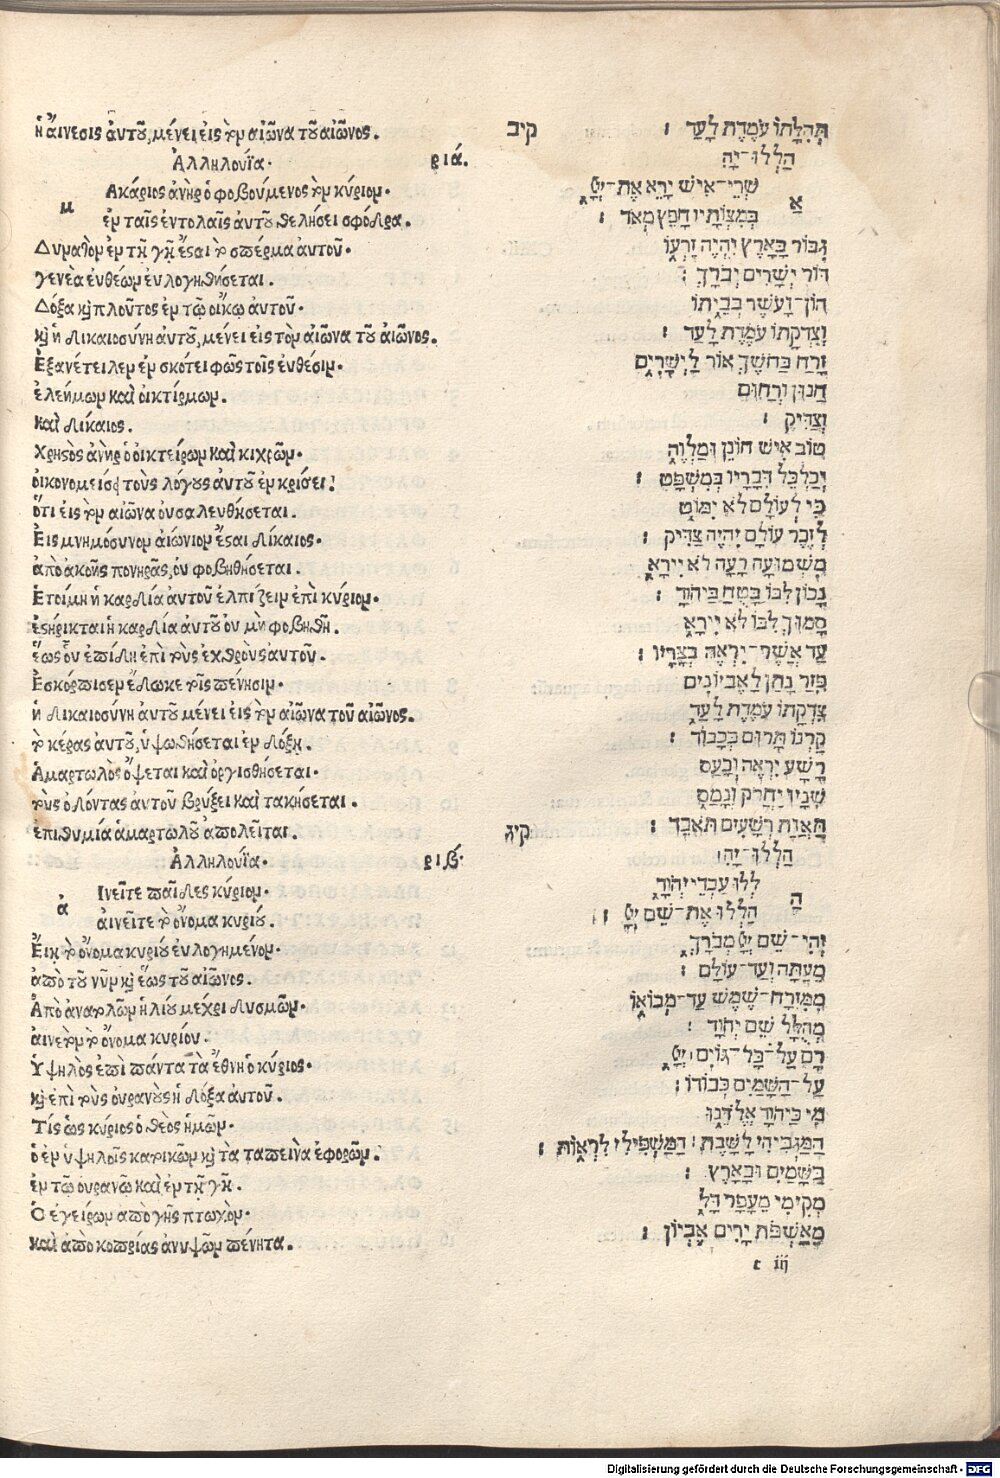 ἡ ἄινεσις ἀυτοῦ, μένει εἰς τὸν αἰῶνα τοῦ αἰῶνος.
Ἀλληλούϊα.
ριά.
μ
Ακάριος ἀνὴρ ὁ φοβούμενος τὸν κύριον.
ἐν ταῖς ἐντολαῖς ἀυτοῦ θελήσει σφοδρα.
Δυνατὸν ἐν τῇ γῇ ἔσται τὸ σπέρμα ἀυτοῦ.
γενεὰ ἐυθέων ἐυλογηθήσεται.
Δόξα καὶ πλοῦτος ἐν τῷ ὀίκῳ ἀυτοῦ.
καὶ ἡ δικαιοσύνη ἀυτοῦ, μένει εἰς τὸν αἰῶνα τοῦ αἰῶνος.
Ἐξανέτειλεν ἐν σκότει φῶς τοῖς ἐυθέσιν.
ἐλεήμων καὶ ὀικτίρμων.
καὶ δίκαιος.
Χρηστὸς ἀνὴρ ὁ ὀικτείρων καὶ κιχρῶν.
ὀικονομεῖσει τοὺς λόγους ἀυτοῦ ἐν κρίσει!
ὅτι εἰς τὸν αἰῶνα ὀυ σαλευθήσεται.
Εις μνημόσυνον αἰώνιον ἔσται δίκαιος.
ἀπὸ ἀκοῆς πονηρᾶς, ὀυ φοβηθήσεται.
Ἑτοίμη ἡ καρδία ἀυτοῦ ἐλπίζειν ἐπὶ κύριον.
ἐστήρικται ἡ καρδία ἀυτοῦ ὀυ μὴ φοβηθῇ.
ἕως ὃυ ἐπίδη ἐπὶ τοὺς ἐχθροὺς ἀυτοῦ.
Ἐσκόρπισεν ἔδωκε τοῖς πένησιν.
ἡ δικαιοσύνη ἀυτοῦ μένει εἰς τὸν αἰῶνα τοῦ αἰῶνος.
τὸ κέρας ἀυτοῦ, ὑψωθήσεται ἐν δόξῃ.
Ἁμαρτωλὸς ὄψεται καὶ ὀργισθήσεται.
τοὺς ὀδόντας ἀυτοῦ βρύξει καὶ τακήσεται.
ἐπιθυμία ἁμαρτωλοῦ ἀπολεῖται.
Ἀλληλούϊα.
ριβ.
ἀ
Ινεῖτε παῖδες κύριον.
ἀινεῖτε τὸ ὄνομα κυρίου.
Ἔιη τὸ ὄνομα κυρίου ἐυλογημένον.
ἀπὸ τοῦ νῦν καὶ ἕως τοῦ αἰῶνος.
Ἀπὸ ἀνατολῶν ἡλίου μέχρι δυσμῶν.
ἀινετὸν τὸ ὄνομα κυρίου.
Ὑψηλὸς ἐπὶ πάντα τὰ ἔθνη ὁ κύριος.
καὶ ἐπὶ τοὺς ὀυρανοὺς ἡ δόξα ἀυτοῦ.
Τίς ὡς κύριος ὁ θεὸς ἡμῶν.
ὁ ἐν ὑψηλοῖς κατοικῶν καὶ τὰ ταπεινὰ ἐφορῶν.
ἐν τῷ ὀυρανῷ καὶ ἐν τῇ γῇ.
Ὁ ἐγείρων ἀπὸ γῆς πτωχὸν.
καὶ ἀπὸ κοπρίας ἀνυψῶν πένητα.
תְּהִלָּתוֹ עֹמֶדֶת לָעַד׃
קיב
הַלְלוּ־יָהּ
א
שְׁרֵי־אִישׁ יָרֵא אֶת־
בְּמִצְוֹתָיו חָפֵץ מְאֹד׃
גִּבּוֹר בָּאָרֶץ יִהְיֶה זַרְעוֹ
דּוֹר יְשָׁרִים יְבֹרָךְ׃
הוֹן־וָעֹשֶׁר בְּבֵיתוֹ
וְצִדְקָתוֹ עֹמֶדֶת לָעַד׃
זָרַח בַּחֹשֶׁךְ אוֹר לַיְשָׁרִים
חַנּוּן וְרַחוּם
וְצַדִּיק׃
טוֹב אִישׁ חוֹנֵן וּמַלְוֶה
יְכַלְכֵּל דְּבָרָיו בְּמִשְׁפָּט׃
כִּי לְעוֹלָם לֹא יִמּוֹט
לְזֵכֶר עוֹלָם יִהְיֶה צַדִּיק׃
מִשְּׁמוּעָה רָעָה לֹא יִירָא
נָכוֹן לִבּוֹ בָּטֻחַ בַּיהוָֹד׃
סָמוּךְ לִבּוֹ לֹא יִירָא
עַד אֲשֶׁר־יִרְאֶה בְצָרָיו׃
פִּזַּר נָתַן לָאֶבְיוֹנִים
צִדְקָתוֹ עֹמֶדֶת לָעַד
קַרְנוֹ תָּרוּם בְּכָבוֹד׃
רָשָׁע יִרְאֶה וְכָעַס
שִׁנָּיו יַחֲרֹק וְנָמָס
תַּאֲוַת רְשָׁעִים תֹּאבֵד׃
קיג
הַלְלוּ־יָהּ׃
ה
לְלוּ עַבְדֵי יְהוָֹד
הַלְלוּ אֶת־שֵׁם
יְהִי־שֵׁם מְבֹרָךְ
מֵעַתָּה וְעַד־עוֹלָם׃
מִמִּזְרַח־שֶׁמֶשׁ עַד־מְבוֹאוֹ
מְהֻלָּל שֵׁם יְהוָֹד׃
רָם עַל־כָּל־גּוֹיִם׀
עַל־הַשָּׁמַיִם כְּבוֹדוֹ׃
מִי כַּיהוָֹד אֱלֹדֵנוּ
הַמַּגְבִּיהִי לָשָׁבֶת׃ הַמַּשְׁפִּילִי לִרְאוֹת׃
בַּשָּׁמַיִם וּבָאָרֶץ׃
מְקִימִי מֵעָפָר דָּל
מֵאַשְׁפֹּת יָרִים אֶבְיוֹן׃
t iij
Digitalisierung gefördert durch die Deutsche Forschungsgemeinschaft - DFG